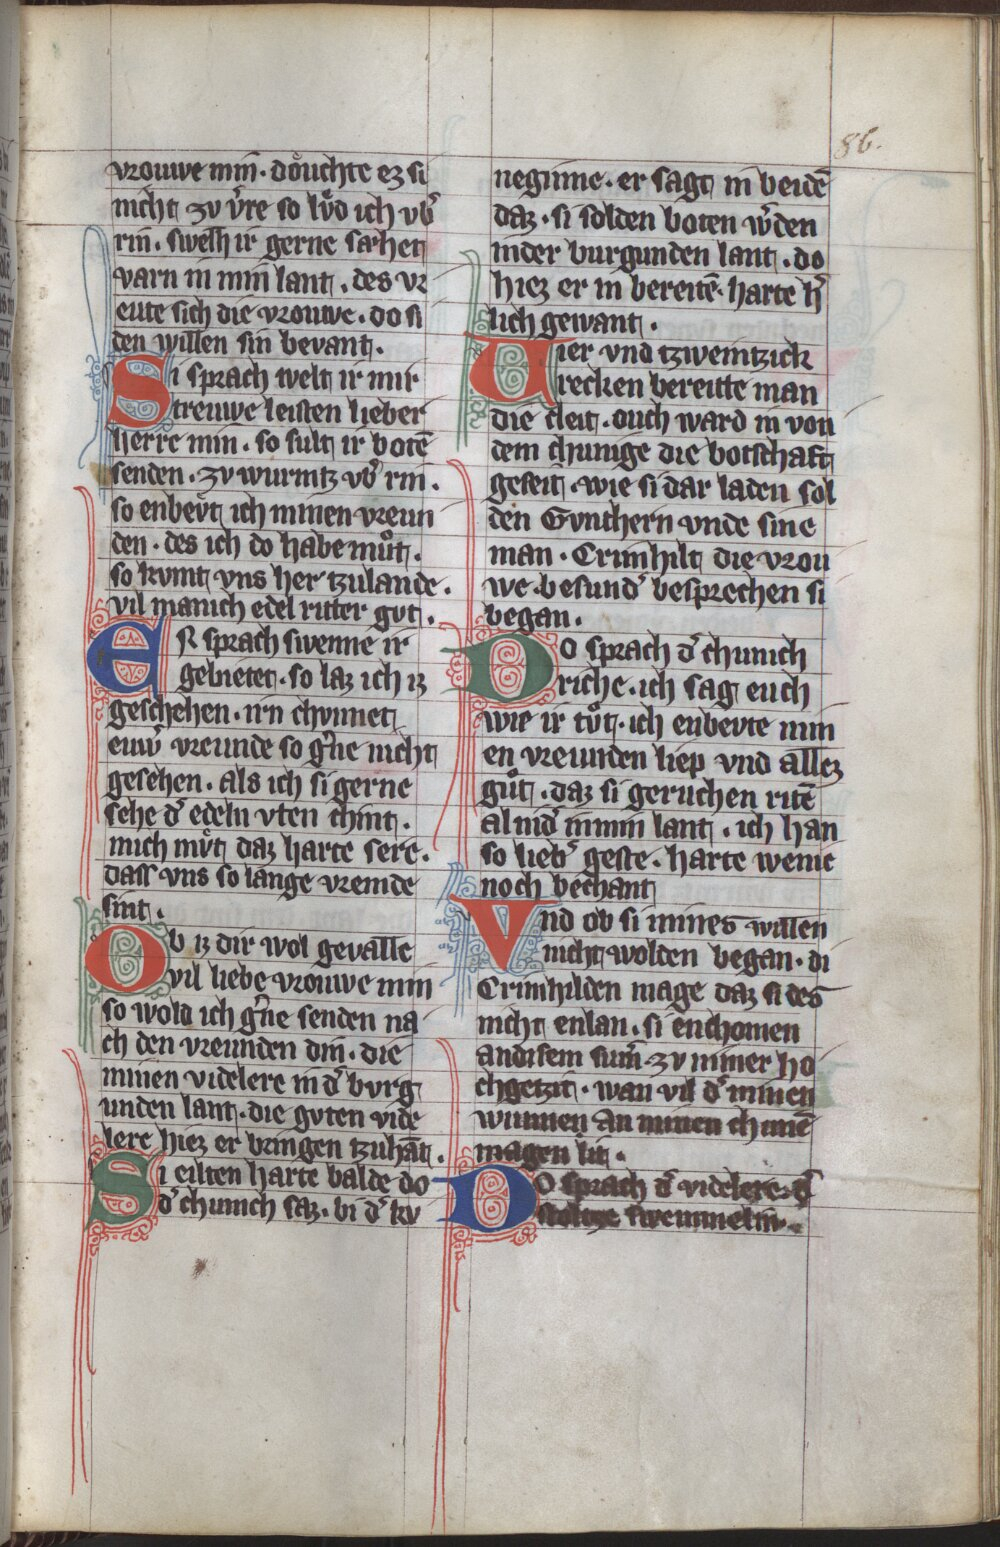 86.
vrouwe min · doͤuchte ez si
nicht zv v̓re so lvͦd ich vb̓
rin · swelh ir gerne sæhet
varn in min lant · des vr
eute sich die vrouwe · do si
den willen sin bevant ·
Si sprach welt ir mir
treuwe leisten lieber
herre min · so sult ir botē
senden · zv wurmtz vb̓ rin ·
so enbevͤt ich minen vreun
den · des ich do habe muͦt ·
so kvmt vns her tzulande ·
vil manich edel ritter gvt ·
ER sprach swenne ir
gebietet · so laz ich iz
geschehen · irn chvnnet
euw̓ vreunde so g̓ne nicht
gesehen · als ich si gerne
sehe d̓ edeln vten chint ·
mich mvͤt daz harte sere ·
dass vns so lange vremde
sint ·
Ob iz dir wol gevalle
vil liebe vrouwe min
so wold ich g̓ne senden na
ch den vreunden din · die
minen videlere in d̓ bvrg
unden lant · die gvten vide
lere hiez er bringen tzuhāt ·
Si eilten harte balde do
d̓ chunich saz · bi d̓ kv
neginne · er sagt in beidē
daz · si solden boten w̓den
inder burgunden lant · do
hiez er in bereitē · harte h̓
lich gewant ·
Uier vnd tzweintzick
recken bereitte man
die cleit · ouch ward in von
dem chunige die botschaft
geseit · wie si dar laden sol
den Gvnthern vnde sine
man · Crimhilt die vrou
we · besund̓ besprechen si
began ·
DO sprach d̓ chunich
riche · ich sag euch
wie ir tvͦt · ich enbevte min
en vreunden liep vnd allez
guͦt · daz si geruchen ritē
al nid̓ in min lant · ich han
so lieb̓ geste · harte wenic
noch bechant
Vnd ob si mines willen
nicht wolden began · di
Crimhilden mage daz si des
nicht enlan · si enchomen
an disem sum̓ · zv miner ho
chgetzit · wan vil d̓ minen
wunnen an minen chunē
magen lit ·
DO sprach d̓ videlere · d̓
stoltze swemmelin ·